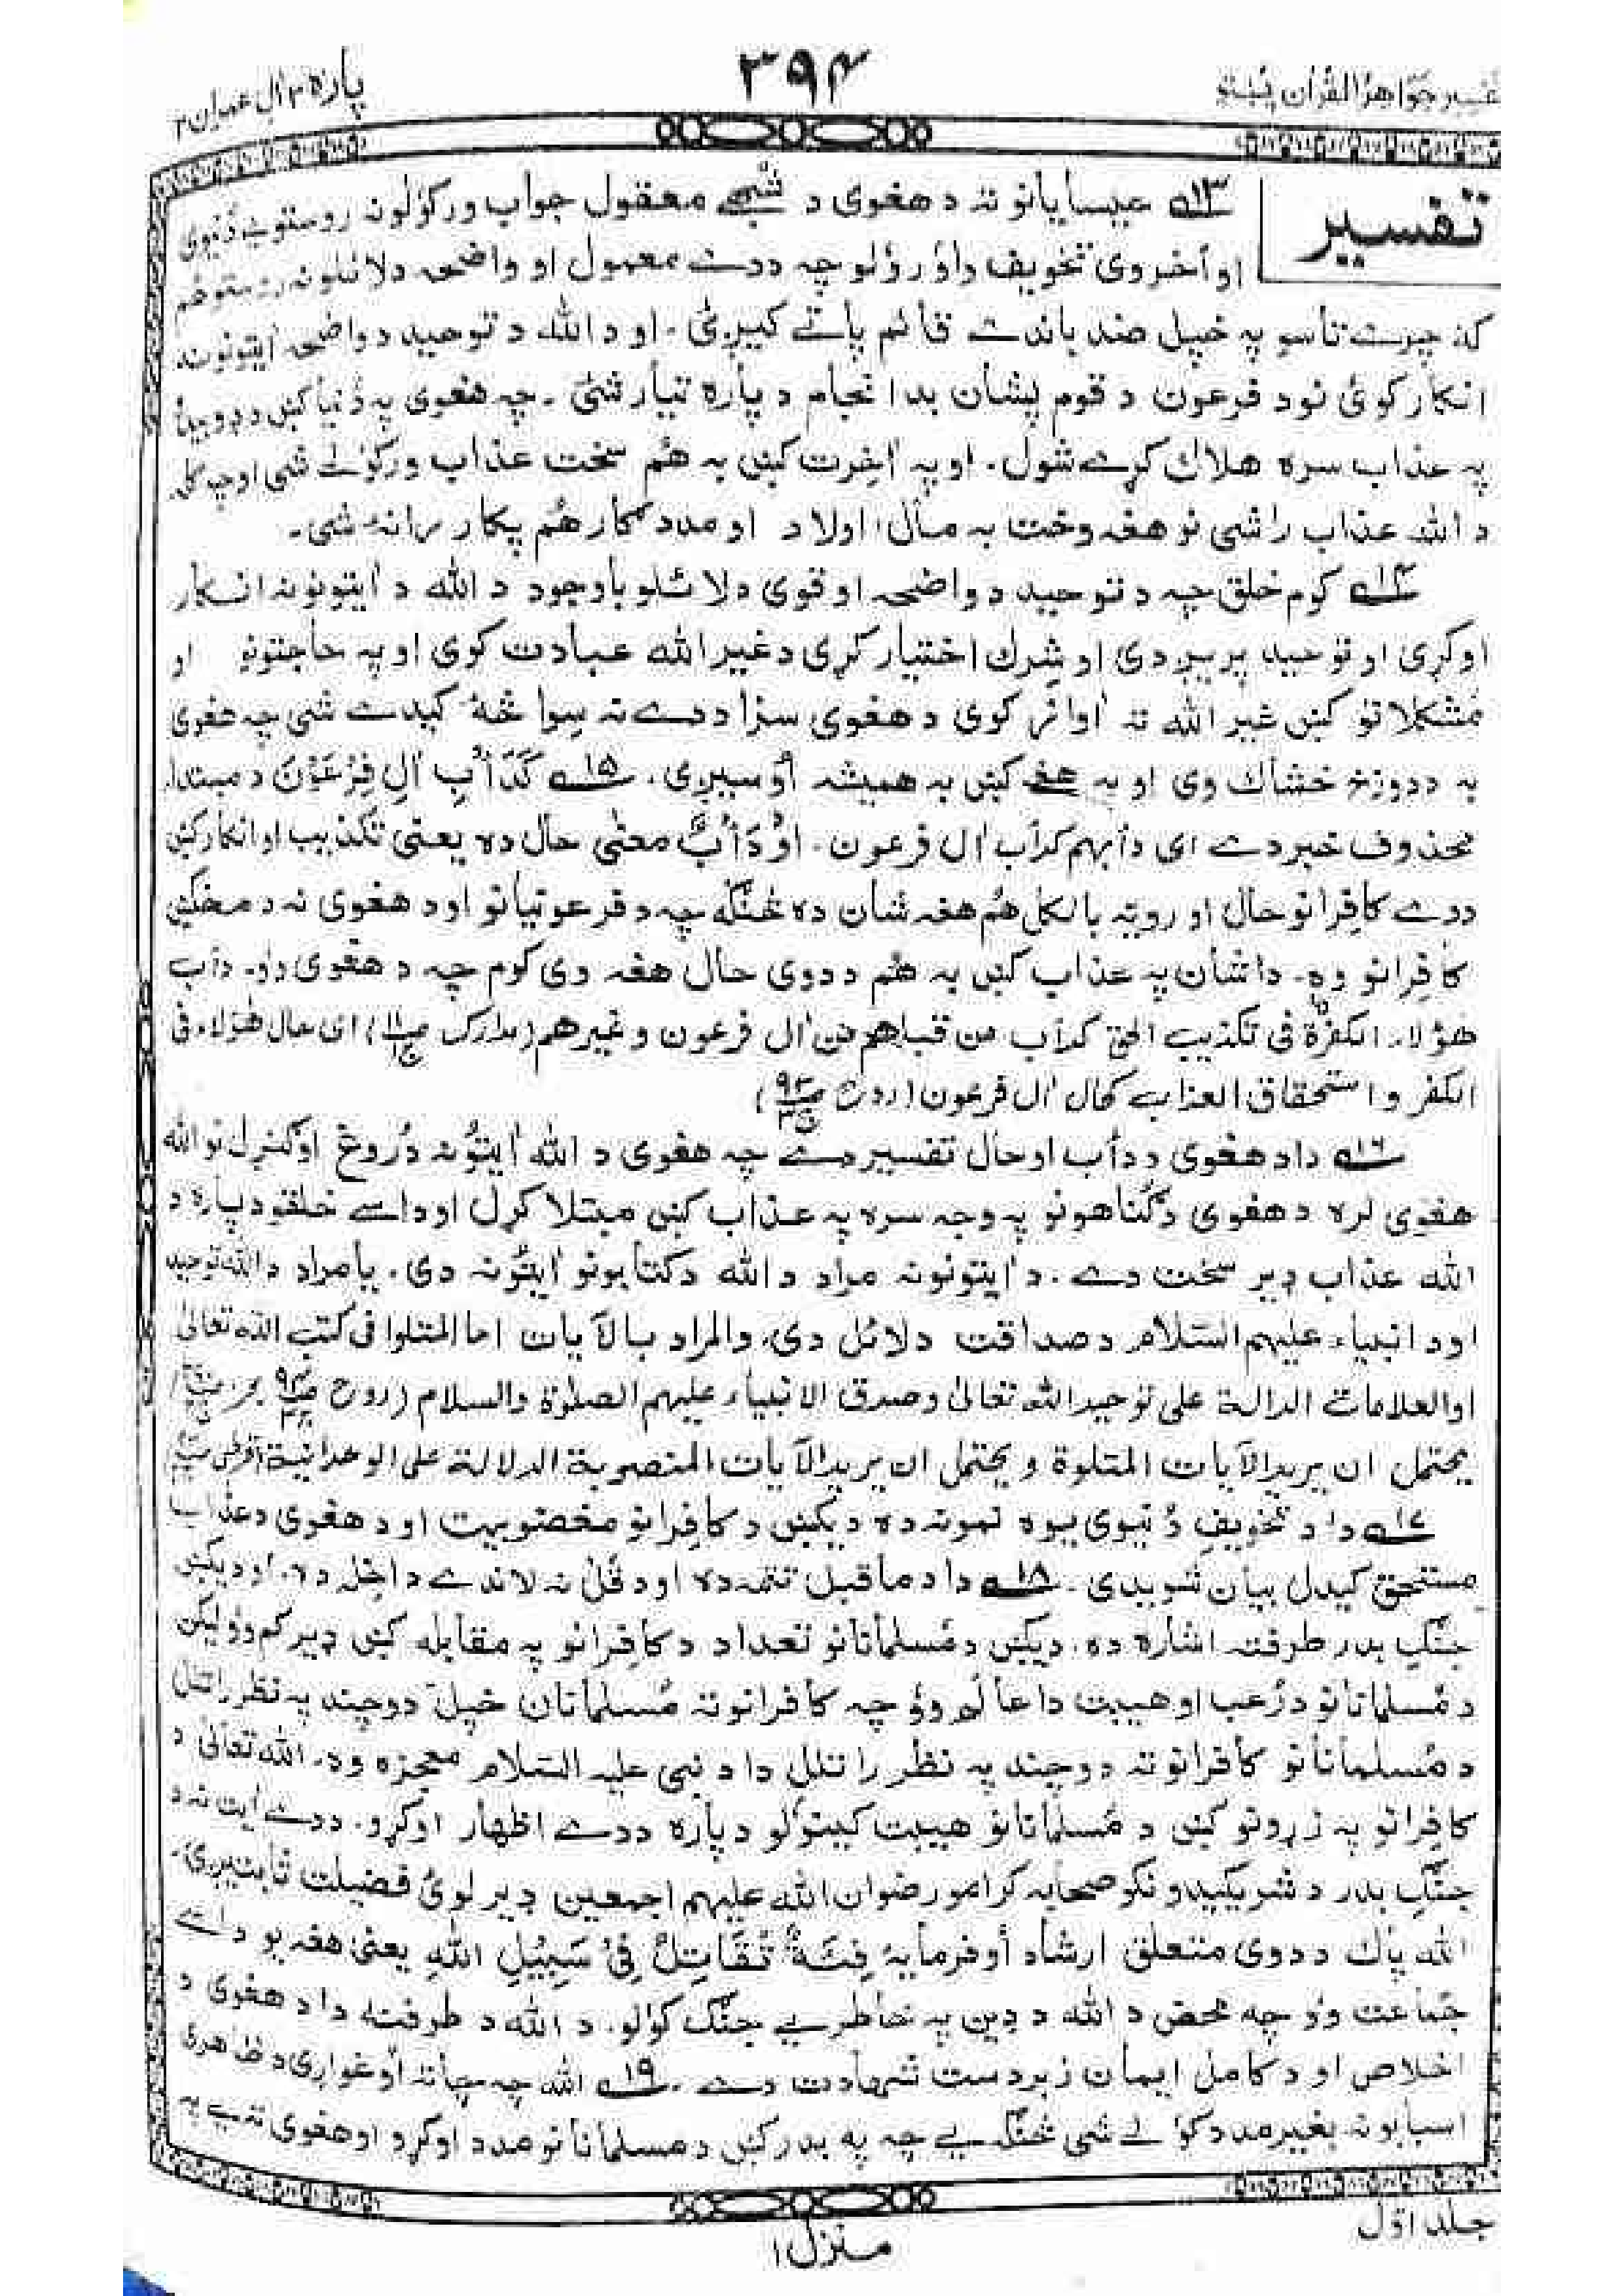 تفسير جواهرُ القُرآن پښتو
۳۹۴
پاره ۳ اٰل عمران ۳
تفسير
۱۳؂ عيسايانو ته د هغوی د شُبهے معقول جواب ورکولونہ روستو ئے دُنيوی
او اُخروی تخويف واؤرؤلو چہ ددے معمول او واضحہ دلائلونہ روستو هُم
کہ چرے تاسو پہ خپل ضد باندے قائم پاتے کيږئ. او د الله د توحيد د واضحہ اٰيتونونہ
انکار کوئ نو د فرعون د قوم پشان بد انجام د پارہ تيار شئ. چہ هغوی پہ دُنيا کښ د ډوبيدو
پہ عذاب سرہ هلاك کړے شول. او پہ اٰخرت کښ بہ هُم سخت عذاب ورکولے شی او چہ کلہ
د الله عذاب راشی نو هغہ وخت بہ مال، اولاد او مددگار هُم پکار رانۂ شی.
۱۴؂ کوم خلق چہ د توحيد د واضحہ او قوی دلائلو باوجود د الله د اٰيتونونہ انکار
اوکړی او توحيد پريږدی او شِرك اختيار کړی د غير الله عبادت کوی او پہ حاجتونو او
مُشکلاتو کښ غير الله تہ اٰوازکوی د هغوی سزا ددے نہ سِوا څۂ کيدے شی چہ هغوی
بہ د دوزخ خشاك وی او پہ هغے کښ بہ هميشہ اُوسيږی. ۱۵؂ کَدَأْبِ اٰلِ فِرْعَوْنَ د مبتدا
محذوف خبر دے ای دأبهم کدأب اٰل فرعون. اوْ دَأْبٌ معنٰی حال دہ يعنی تکذيب او انکار کښ
ددے کافرانو حال او رويہ بالکل هُم هغہ شان دہ څنګہ چہ د فرعونيانو او د هغوی نہ د مخکښ
کافِرانو وہ. دا شان پہ عذاب کښ بہ هُم د دوی حال هغہ وی کوم چہ د هغوی وؤ. دأب
هٰؤلاء الکفرة فی تکذيب الحق کدأب من قبلهم من اٰل فرعون وغيرهم (مدارك) ای حال هٰؤلاء فی
الکفر و استحقاق العذاب کحال اٰل فرعون (روح ص۹۳ ج۳)
۱۶؂ دا د هغوی د دأب او حال تفسير دے چہ هغوی د الله اٰيتُونہ دُروغ اوګنړل نو الله
هغوی لره د هغوی د ګناهونو پہ وجہ سرہ پہ عذاب کښ مبتلا کړل او داسے خلقو د پارہ د
الله عذاب ډير سخت دے. د اٰيتونونہ مراد د الله د کتابونو اٰيتُونہ دی. يا مراد د الله توحيد
او د انبياء عليهم السّلام د صداقت دلائل دی. والمراد بالآيات اما المتلوا فی کتب الله تعالٰی
اوالعلامات الدالة علی توحيد الله تعالٰی وصدق الانبياء عليهم الصلوٰة والسلام (روح ص۹۳ ج۳)
يحتمل ان يريد الآيات المتلوة ويحتمل ان يريد الآيات المنصوبة الدلالة علی الوحدانية (قرطبی
۱۷؂ دا د تخويفِ دُنيوی يوہ نمونہ دہ ديکښ د کافِرانو مغضوبيت او د هغوی د عذاب
مستحق کيدل بيان شويدی. ۱۸؂ دا د ماقبل تتمہ دہ او د قُلْ نہ لاندے داخل دہ. او ديکښ
جنګِ بدر طرفتہ اشارہ دہ. ديکښ د مُسلمانانو تعداد د کافِرانو پہ مقابلہ کښ ډير کم وؤ ليکن
د مُسلمانانو د رُعب او هيبت دا عالَم وؤ چہ کافرانوتہ مُسلمانان خپل دوچند پہ نظر راتلل
د مُسلمانانو کافرانوتہ دوچند پہ نظر راتلل دا د نبی عليہ السّلام معجزہ وہ. الله تعالٰی د
کافِرانو پہ زړونو کښ د مُسلمانانو هيبت کينولو د پارہ ددے اظهار اوکړو. ددے اٰيت نہ د
جنګِ بدر د شريکيدونکو صحابہ کرامو رضوان الله عليهم اجمعين ډير لوئ فضيلت ثابتيږی.
الله پاك د دوی متعلق ارشاد اُوفرمايۂ فِئَةٌ تُقَاتِلُ فِیْ سَبِيْلِ اللهِ يعنی هغہ يو داسے
جماعت وؤ چہ محض د الله د دِين پہ خاطر ئے جنګ کولو. د الله د طرفنہ دا د هغوی د
اخلاص او د کامل ايمان زبردست شهادت دے. ۱۹؂ الله چہ چاتہ اُوغواړی د ظاهری
اسبابونہ بغير مدد کولے شی څنګہ ئے چہ پہ بدر کښ د مسلمانانو مدد اوکړو او هغوی تہ ئے پہ
جلد اوّل
منزل ۱